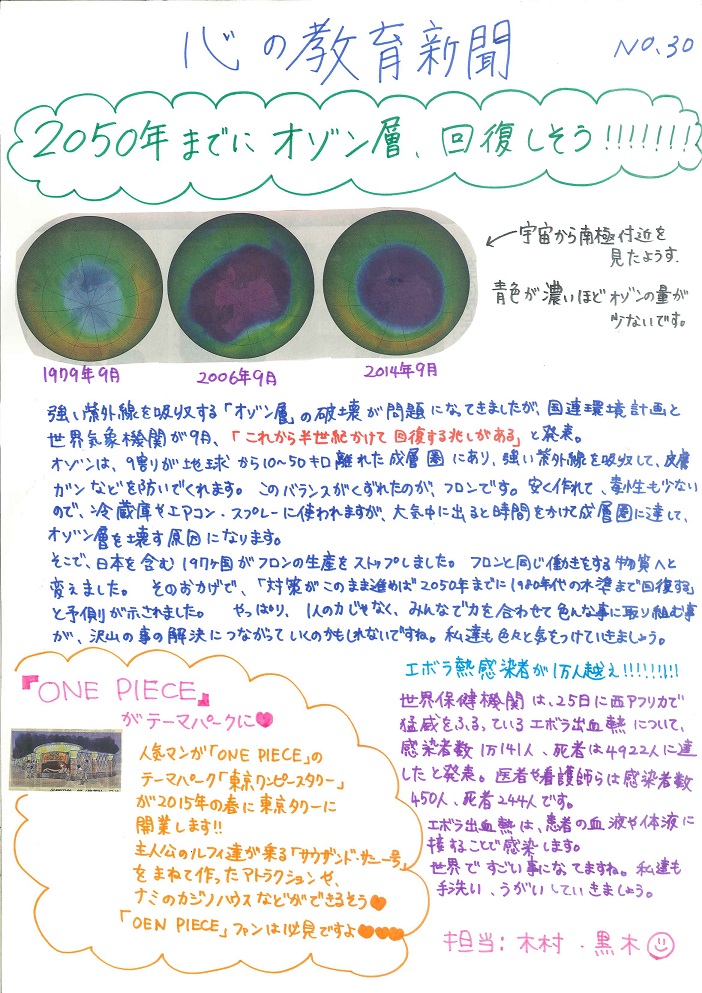 心の教育新聞
NO.30
2050年までに オゾン層、回復しそう!!!!!!!
宇宙から南極付近を
見たようす.
青色が濃いほどオゾンの量が
少ないです。
1979年9月
2006年9月
2014年9月
強い紫外線を吸収する「オゾン層」の破壊が問題になってきましたが、国連環境計画と
世界気象機関が9月、「これから半世紀かけて回復する兆しがある」と発表。
オゾンは、9割りが地球から10~50キロ離れた成層圏にあり、強い紫外線を吸収して、皮膚
ガンなどを防いでくれます。このバランスがくずれたのが、フロンです。安く作れて、毒性も少ない
ので、冷蔵庫やエアコン・スプレーに使われますが、大気中に出ると時間をかけて成層圏に達して、
オゾン層を壊す原因になります。
そこで、日本を含む197ヶ国がフロンの生産をストップしました。フロンと同じ働きをする物質へと
変えました。そのおかげで、「対策がこのまま進めば2050年までに1980年代の水準まで回復する」
と予測が示されました。やっぱり、1人の力じゃなく、みんなで力を合わせて色んな事に取り組む事
が、沢山の事の解決につながっていくのかもしれないですね。私達も色々と気をつけていきましょう。
『ONE PIECE』
がテーマパークに♥
人気マンガ「ONE PIECE」の
テーマパーク「東京ワンピースタワー」
が2015年の春に東京タワーに
開業します!!
主人公のルフィ達が乗る「サウザンド・サニー号」
をまねて作ったアトラクションや、
ナミのカジノハウスなどができるそう♥
「OEN PIECE」ファンは必見ですよ♥♥♥
エボラ熱感染者が1万人越え!!!!!!!!
世界保健機関は、25日に西アフリカで
猛威をふるっているエボラ出血熱について、
感染者数1万141人、死者は4922人に達
したと発表。医者や看護師らは感染者数
450人、死者244人です。
エボラ出血熱は、患者の血液や体液に
接することで感染します。
世界ですごい事になってますね。私達も
手洗い、うがいしていきましょう。
担当:木村・黒木☺